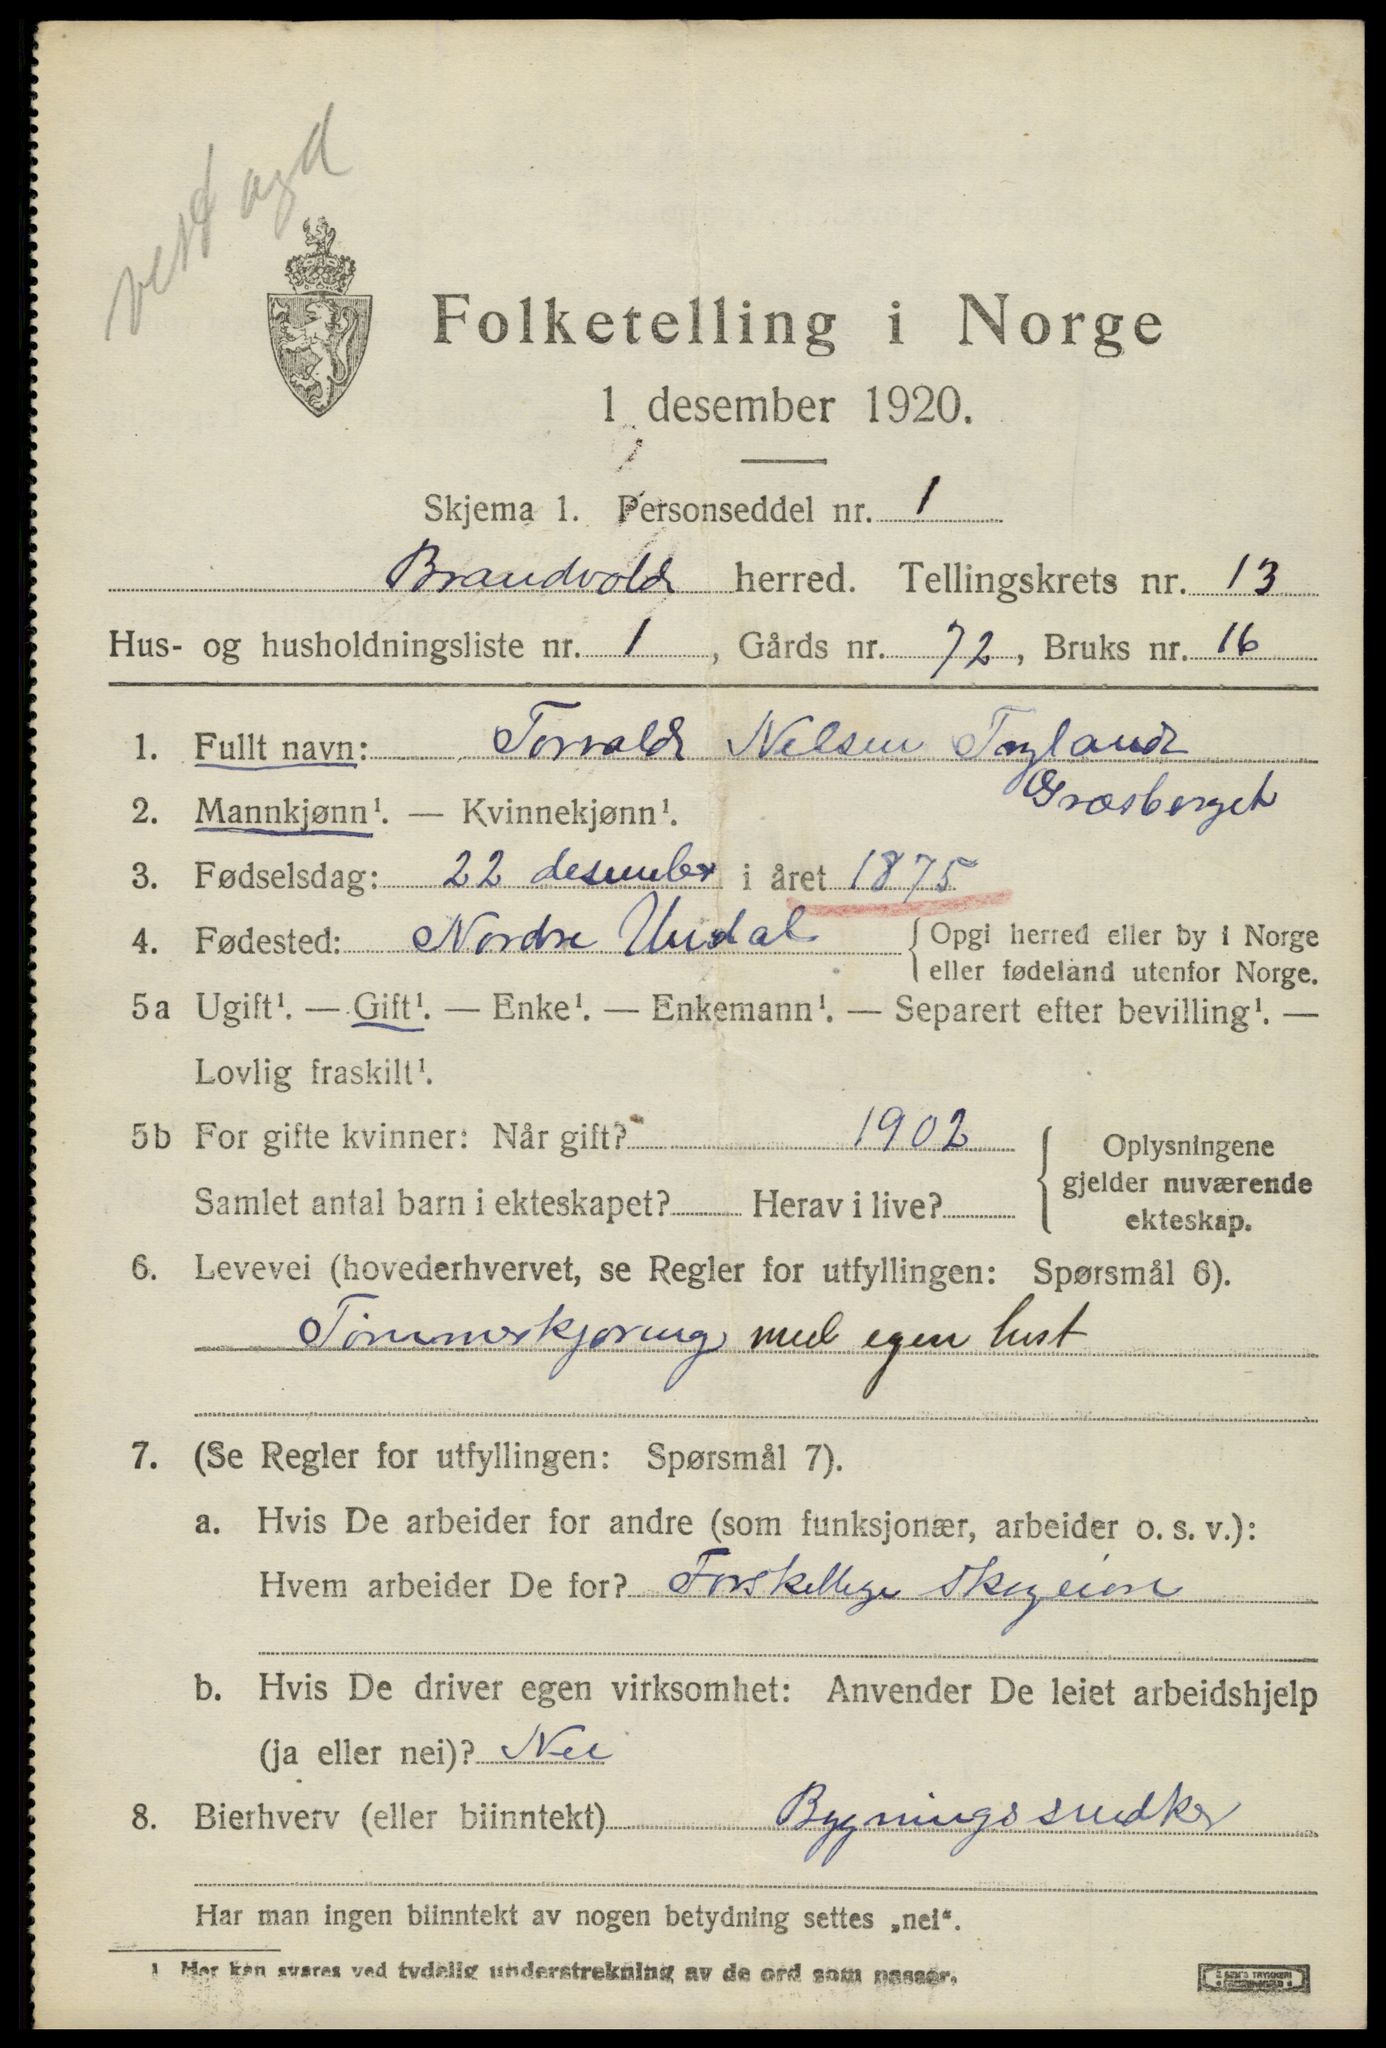 vest agd
Folketelling i Norge
1 desember 1920.
Skjema 1. Personseddel nr. 1
Brandvold herred. Tellingskrets nr. 13
Hus- og husholdningsliste nr. 1, Gårds nr. 72, Bruks nr. 16
1. Fullt navn: Torvald Nelsen Tryland
Græsberget
2. Mannkjønn¹. — Kvinnekjønn¹.
3. Fødselsdag: 22 desember i året 1875
4. Fødested: Nordre Undal {Opgi herred eller by i Norge
eller fødeland utenfor Norge.
5a Ugift¹. — Gift¹. — Enke¹. — Enkemann¹. — Separert efter bevilling¹. —
Lovlig fraskilt¹.
5b For gifte kvinner: Når gift? 1902
Samlet antal barn i ekteskapet? Herav i live?
Oplysningene
gjelder nuværende
ekteskap.
6. Levevei (hovederhvervet, se Regler for utfyllingen: Spørsmål 6).
Tømmerkjøring med egen hest
7. (Se Regler for utfyllingen: Spørsmål 7).
a. Hvis De arbeider for andre (som funksjonær, arbeider o. s. v.):
Hvem arbeider De for? Forskellige skogeiere
b. Hvis De driver egen virksomhet: Anvender De leiet arbeidshjelp
(ja eller nei)? Nei
8. Bierhverv (eller biinntekt) Bygningssnedker
Har man ingen biinntekt av nogen betydning settes „nei“.
1 Her kan svares ved tydelig understrekning av de ord som passer.